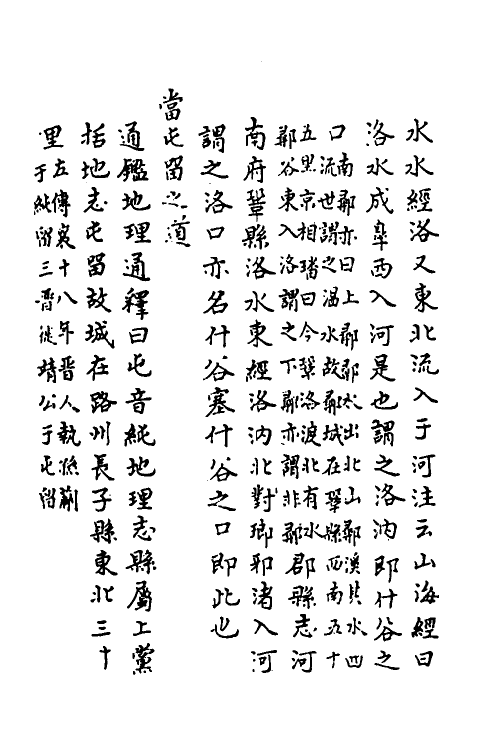 水水經洛又東北流入于河注云山海經曰
洛水成皋西入河是也謂之洛汭即什谷之
口南鄩亦曰上鄩鄩水出北山鄩溪其水四
流世謂之溫水故鄩城在鞏縣西南五十
五里京相璠曰今鞏洛渡北有水
鄩谷東入洛謂之下鄩亦謂非鄩郡縣志河
南府鞏縣洛水東經洛汭北對瑯邪渚入河
謂之洛口亦名什谷塞什谷之口即此也
當屯留之道
通鑑地理通釋曰屯音純地理志縣屬上黨
括地志屯留故城在路州長子縣東北三十
里左傳襄十八年晉人執孫蒯
于純留三晉徙靖公于屯留